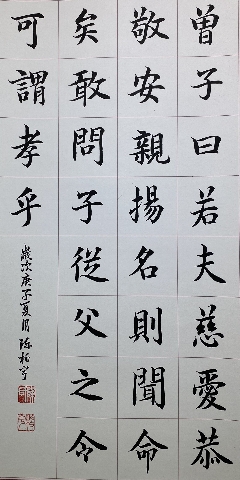 曾子曰若夫慈愛恭
敬安親揚名則聞命
矣敢問子從父之令
可謂孝乎
歲次庚子夏月